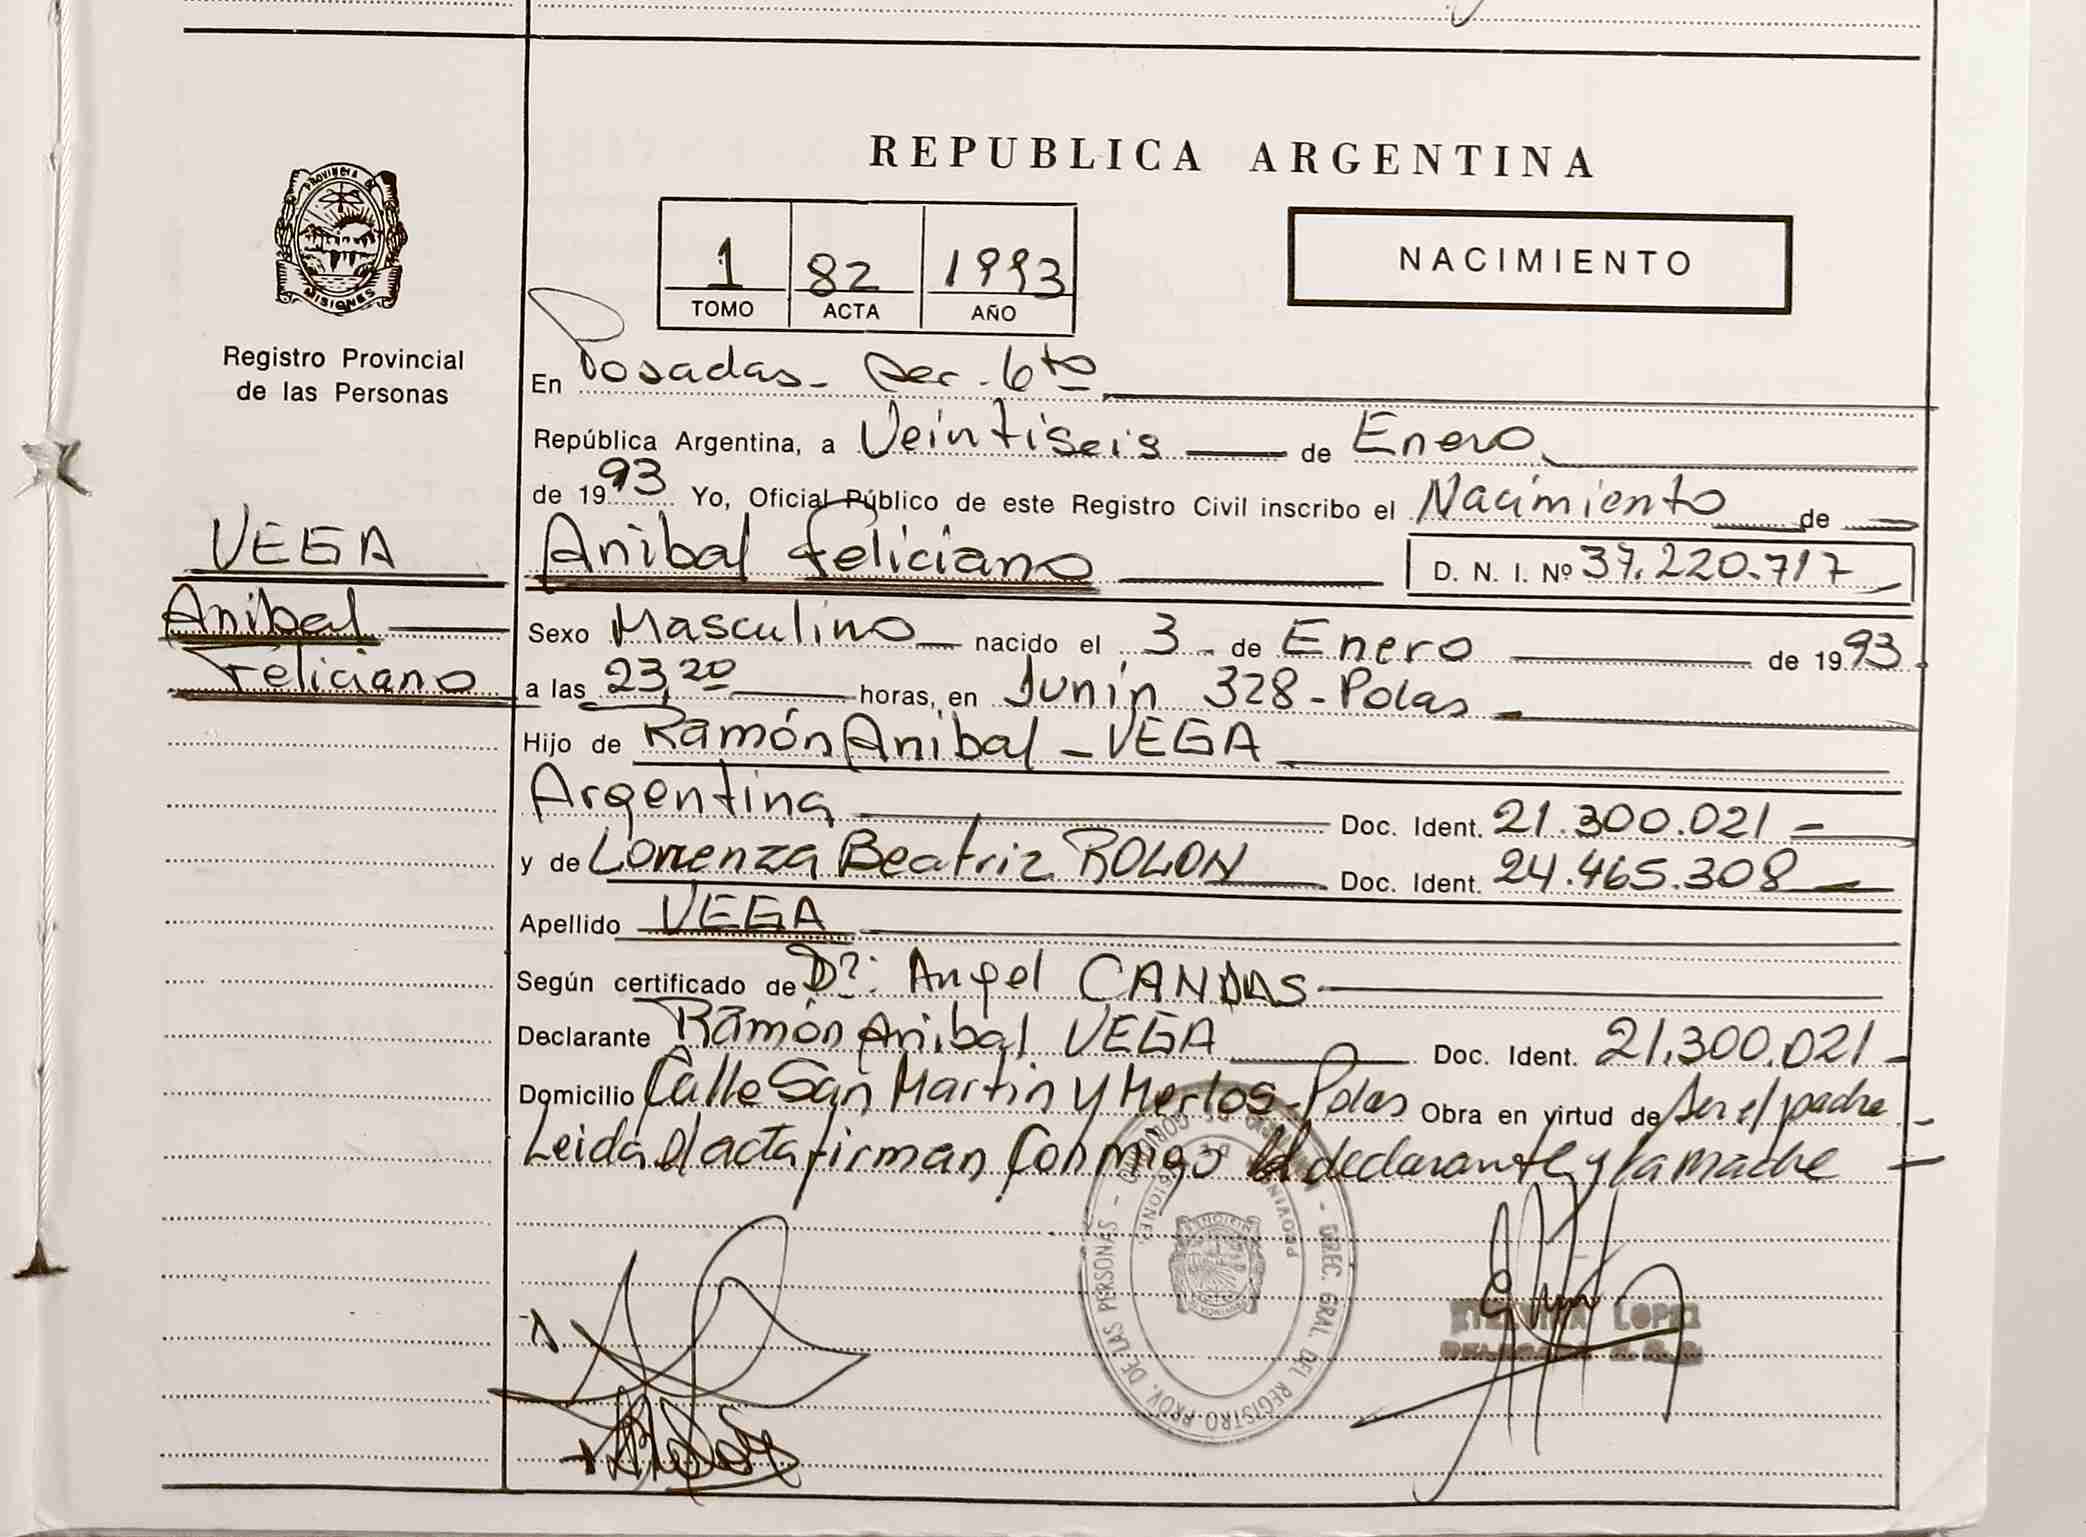 REPUBLICA ARGENTINA
PROVINCIA DE
MISIONES
Registro Provincial
de las Personas
1 82 1993
TOMO ACTA AÑO
NACIMIENTO
En Posadas - Sec. 6to
República Argentina, a Veintiseis de Enero
de 1993 Yo, Oficial Público de este Registro Civil inscribo el Nacimiento de
VEGA
Anibal Feliciano D. N. I. Nº 37.220.717
Anibal
Feliciano
Sexo Masculino nacido el 3 - de Enero de 1993
a las 23,20 horas, en Junín 328 - Pdas
Hijo de Ramón Anibal - VEGA
Argentina Doc. Ident. 21.300.021 -
y de Lorenza Beatriz ROLON Doc. Ident. 24.465.308
Apellido VEGA
Según certificado de Dr: Angel CANDAS
Declarante Ramón Anibal VEGA Doc. Ident. 21.300.021 -
Domicilio Calle San Martin y Merlos - Pdas Obra en virtud de ser el padre
Leida el acta firman conmigo el declarante y la madre
DIREC. GRAL. DEL REGISTRO PROV. DE LAS PERSONAS - MINISTERIO DE GOBIERNO -
PROVINCIA DE MISIONES
LOPEZ